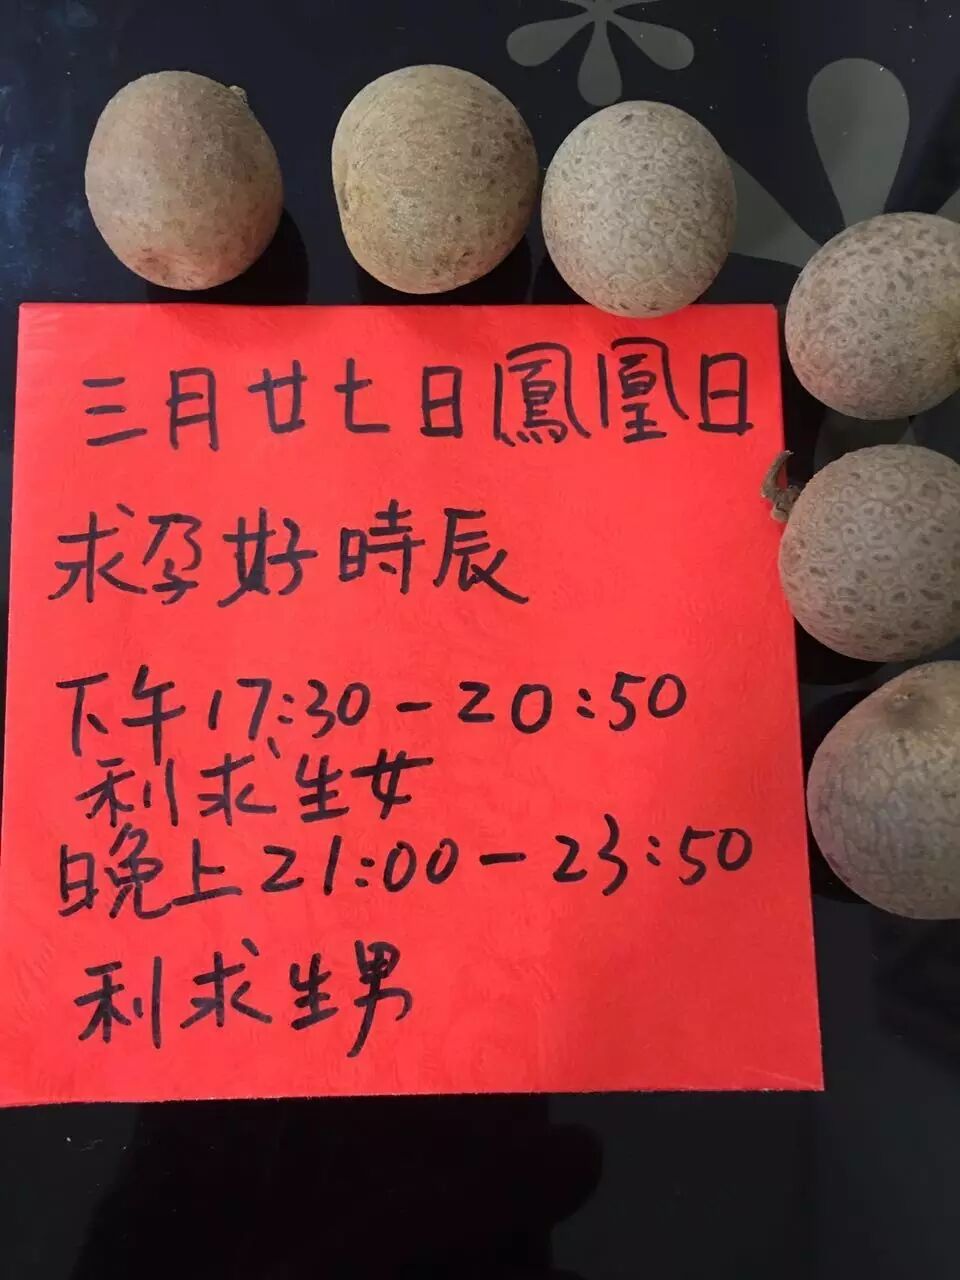 三月廿七日鳳凰日
求孕好時辰
下午17:30-20:50
利求生女
晚上21:00-23:50
利求生男